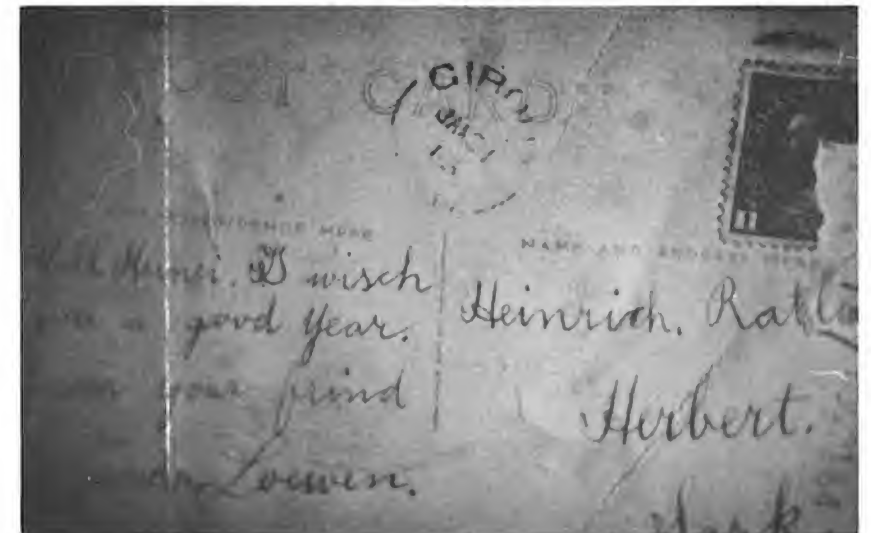 POST CARD
GIROU
JAN 21
CORRESPONDENCE HERE
NAME AND ADDRESS HERE
Well Heinei. I wisch
you a good year.
your frind
Loewen.
Heinrich. Ratla
Herbert.
Sask.